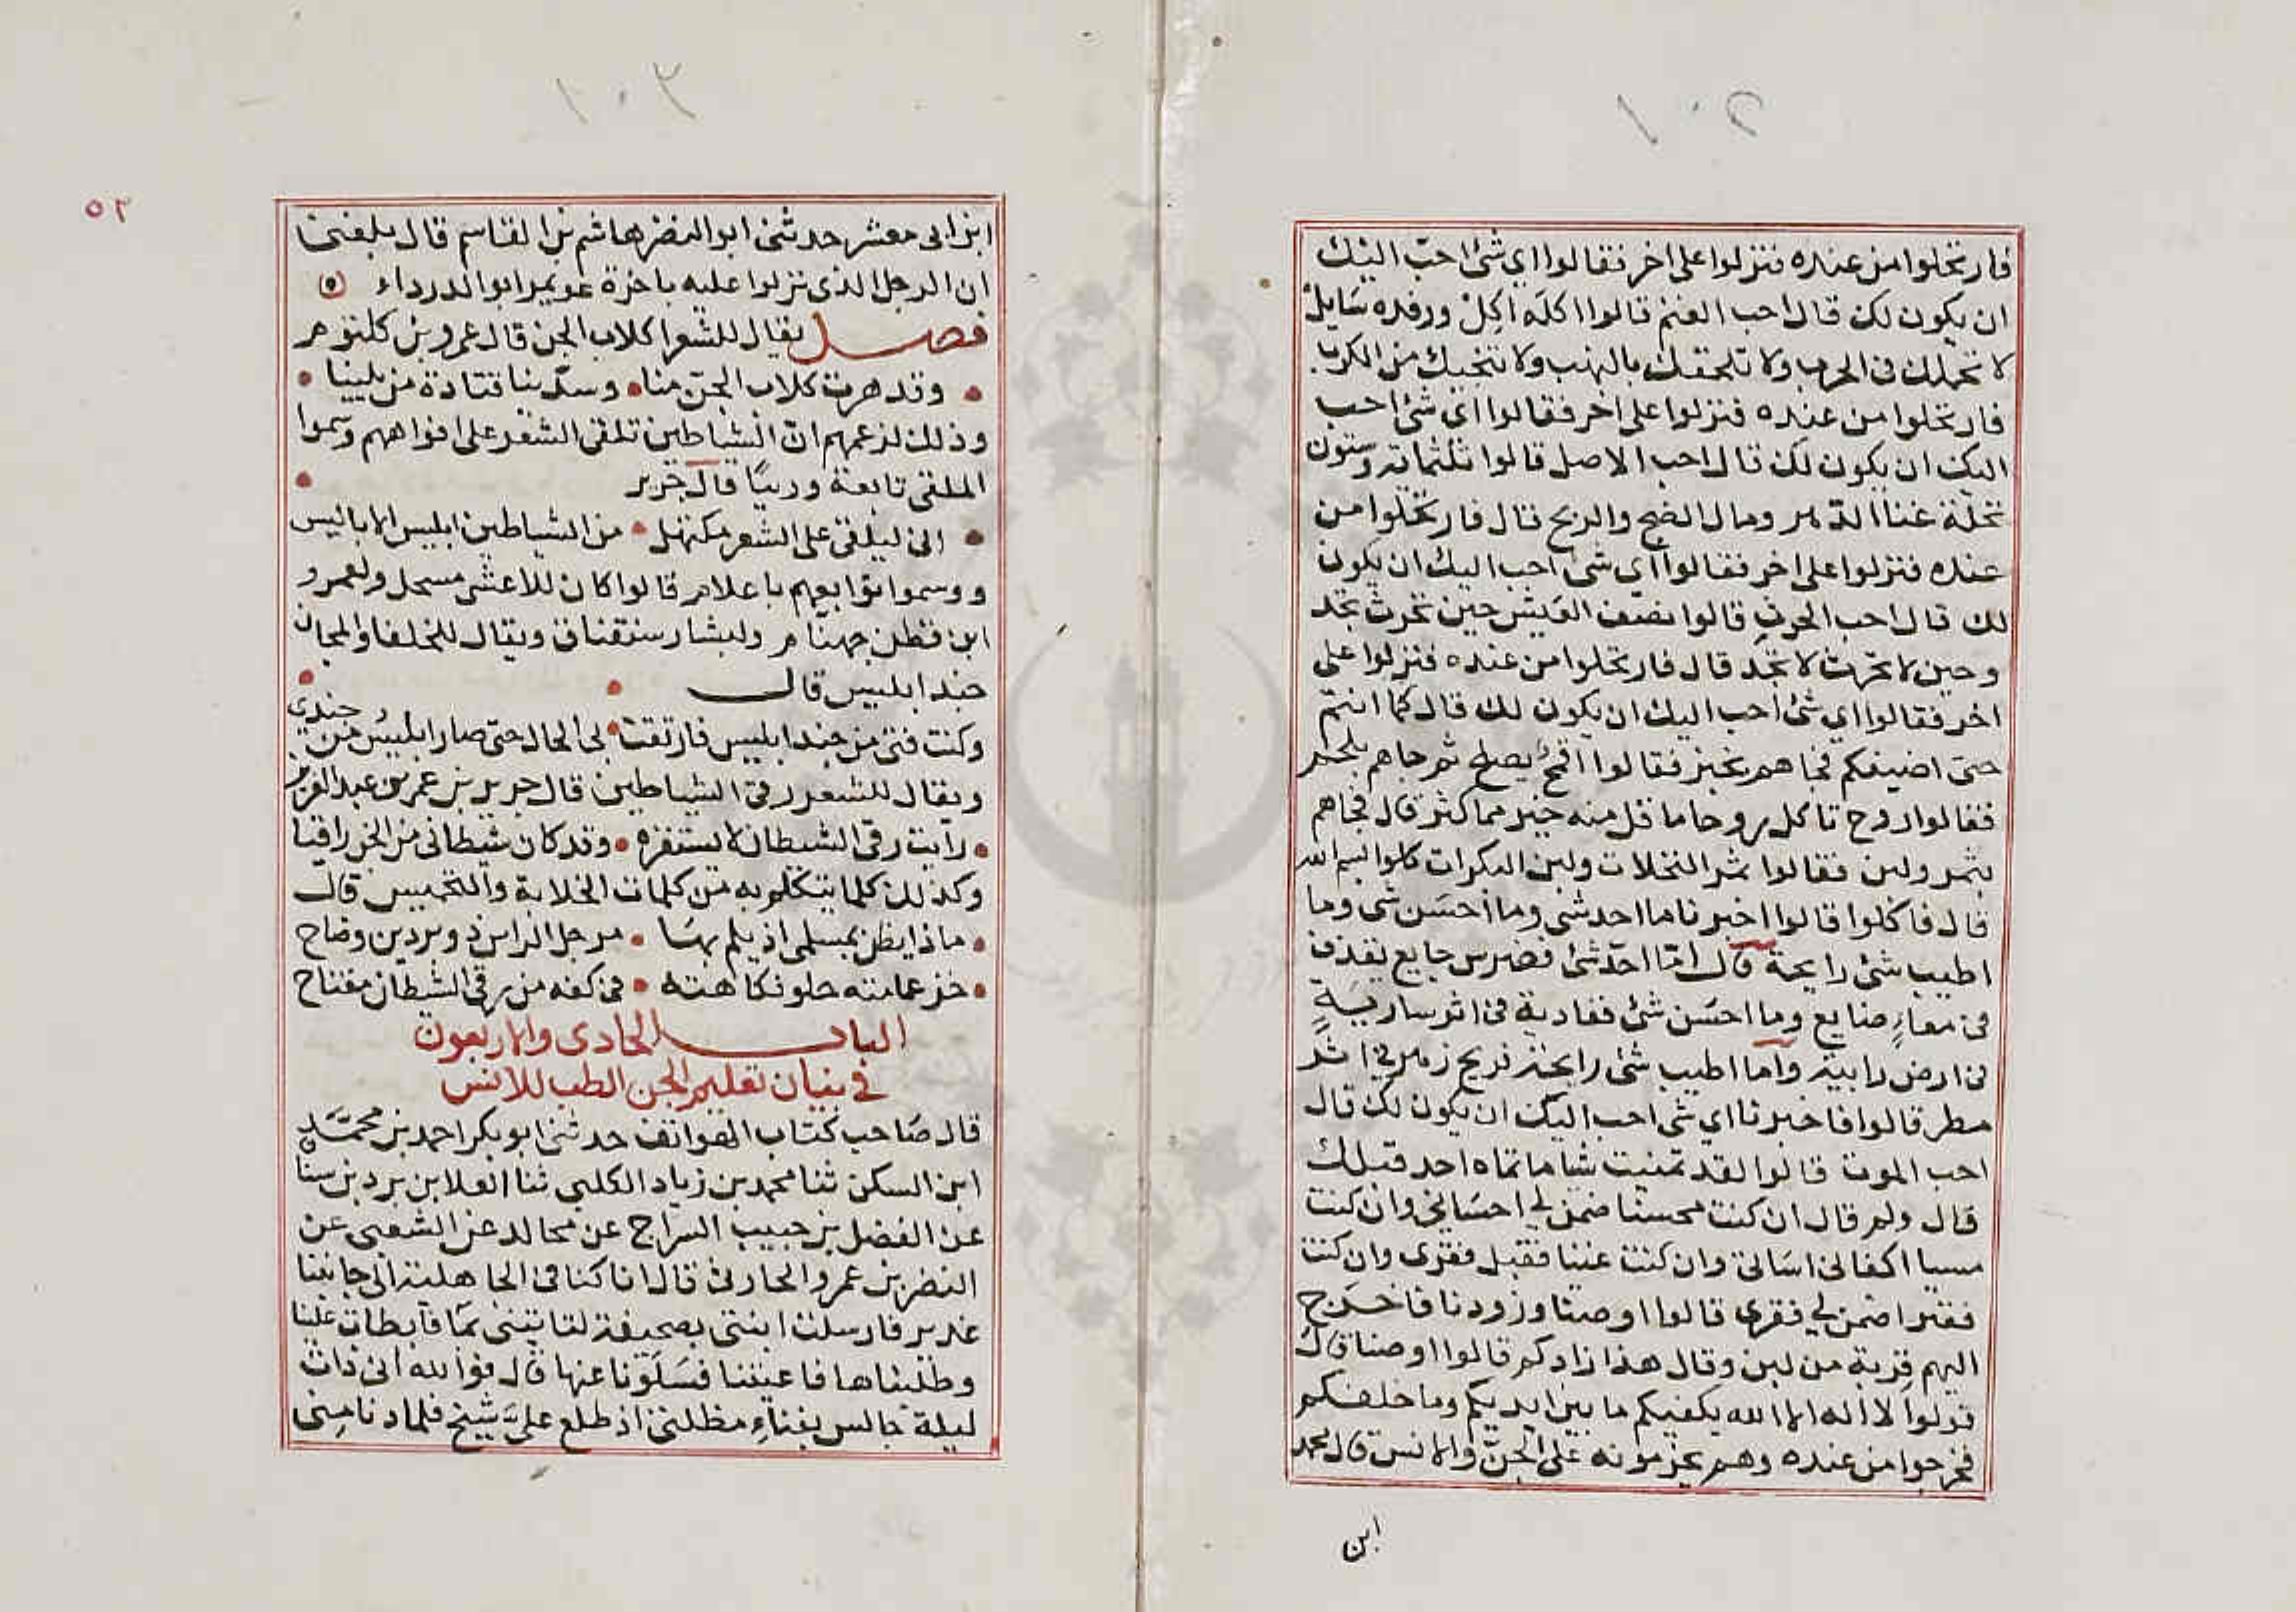 ١٠٢
فارتحلوا من عنده فنزلوا على اخر فقالوا اي شئ احبّ اليك
ان يكون لك قال احب الغنم قالوا اكلة اكل ورفده سايل
لا تحملك فى الحرب ولا تلحقك بالنهب ولا تنجيك من الكرب
فارتحلوا من عنده فنزلوا على اخر فقالوا اى شئ احب
اليك ان يكون لك قال احب الاصل قالوا ثلثماية وستون
نخلة غنا الدهر ومال الضح والريح قال فارتحلوا من
عنده فنزلوا على اخر فقالوا اى شئ احب اليك ان يكون
لك قال احب الحرث قالوا نصف العيش حين تحرث تجد
وحين لا تحرث لا تجد قال فارتحلوا من عنده فنزلوا على
اخر فقالوا اي شئ احب اليك ان يكون لك قال كما انتم
حتى اضيفكم فجاهم بخبز فقالوا قمح يصلح ثم جاهم بلحم
فقالوا روح تاكل روحا ما قل منه خير مما كثر قال فجاهم
بتمر ولبن فقالوا تمر النخلات ولبن البكرات كلوا بسم الله
قال فاكلوا قالوا اخبرنا ما احد شئ وما احسن شى وما
اطيب شئ رايحة قال امّا احدّ شئ فضرس جايع يقذف
فى معاءٍ ضايع وما احسن شئ فغادية فى اثر سارية
فى ارض رابية واما اطيب شئ رايحة فريح زهر في اثر
مطر قالوا فاخبرنا اي شى احب اليك ان يكون لك قال
احب الموت قالوا لقد تمنيت شيا ما تمناه احد قبلك
قال ولم قال ان كنت محسنا ضمن لي احسانى وان كنت
مسيا اكفانى اسائى وان كنت غنيا فقبل فقرى وان كنت
فقيرا ضمن لي فقرى قالوا اوصنا وزودنا فاخرج
اليهم قربة من لبن وقال هذا زادكم قالوا اوصنا قال
قولوا لا اله الا الله يكفيكم ما بين ايديكم وما خلفكم
فخرجوا من عنده وهم يحزمونه على الجنّ والانس قال محمد
ابن
١٠٣
٥٢
ابن ابى معشر حدثنى ابو النضر هاشم بن القاسم قال بلغنى
ان الرجل الذى نزلوا عليه باخرة عويمر ابو الدرداء
فصل يقال للشعرا كلاب الجن قال عمرو بن كلثوم
وقد هرت كلاب الجنّ منا وسدّبنا قتادة من يلينا
وذلك لزعمهم انّ الشياطين تلقى الشعر على افواههم وسموا
الملقى تابعة ورييًا قال جرير
انى ليلقى على الشعر مكتهل من الشياطين ابليس الاباليس
ووسموا توابعهم باعلام قالوا كان للاعشى مسحل ولعمرو
ابن قطن جهنّام ولبشار سنقناق ويقال للخلفا والمجان
جند ابليس قال
وكنت فتى من جند ابليس فارتقت بى الحال حتى صار ابليس من جندى
ويقال للشعر رقى الشياطين قال جرير بن عمر بن عبد العزيز
رايت رقى الشيطان لا يستفزه وقد كان شيطانى من الجن راقيا
وكذلك كلما يتكلم به من كلمات الخلابة والتخميس قال
ماذا يظن بسلمى اذ يلم بها مرجل الراس ذو بردين وضاح
خز عمامته حلو فكاهته فى كفه من رقى الشيطان مفتاح
الباب الحادى والاربعون
في بيان تعليم الجن الطب للانس
قال صاحب كتاب الهواتف حدثنى ابو بكر احمد بن محمّد
ابن السكن ثنا محمد بن زياد الكلبى ثنا العلا بن برد بن سنان
عن الفضل بن حبيب السراج عن مجالد عن الشعبى عن
النضر بن عمرو الحارثى قال انا كنا فى الجاهلية الى جانبنا
غدير فارسلت ابنتى بصحيفة لتاتينى بما فابطات علينا
وطلبناها فاعيتنا فسلونا عنها قال فوالله انى ذات
ليلة جالس بفناء مظلتى اذ طلع علىّ شيخ فلما دنا منى